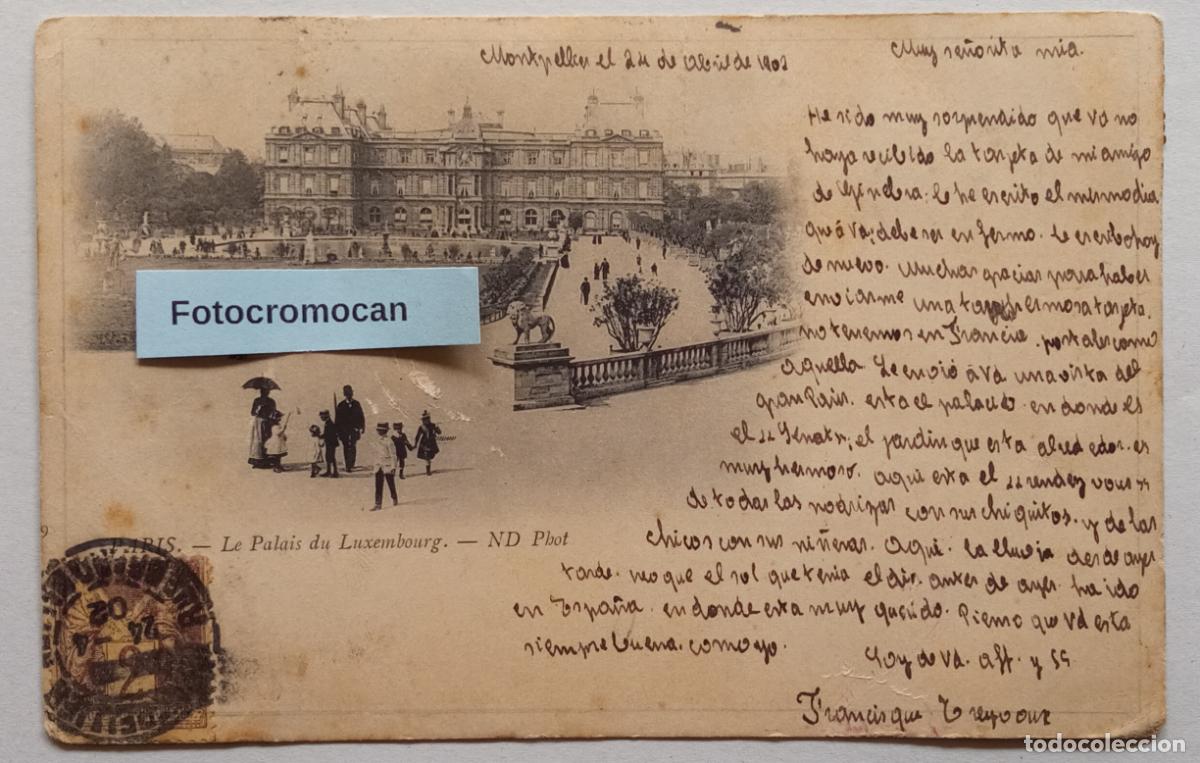 Montpellier el 24 de abril de 1902
Muy señorita mia.
He sido muy sorprendido que Vd no
haya recibido la tarjeta de mi amigo
de Ginebra. le he escrito el mismo dia
que á Vd; debe ser enfermo. le escribo hoy
de nuevo. Muchas gracias para haber
enviarme una tan hermosa tarjeta.
no tenemos en Francia. portales como
aquella. Le envió á Vd una vista del
gran Paris. esta el palacio en donde es
el "Senat"; el jardin que esta alrededor. es
muy hermoso. aqui esta el "rendez vous"
de todas las nodrizas con sus chiquitos. y de las
chicos con sus niñeras. Aqui. la lluvia desde ayer
tarde. el sol que tenia el dia. antes de ayer. ha ido
en España. en donde esta muy querido. Pienso que Vd esta
siempre buena. como yo.
Soy de Vd. aff. y SS
Francisque
Fotocromocan
PARIS. — Le Palais du Luxembourg. — ND Phot
24 -4
02
todocoleccion